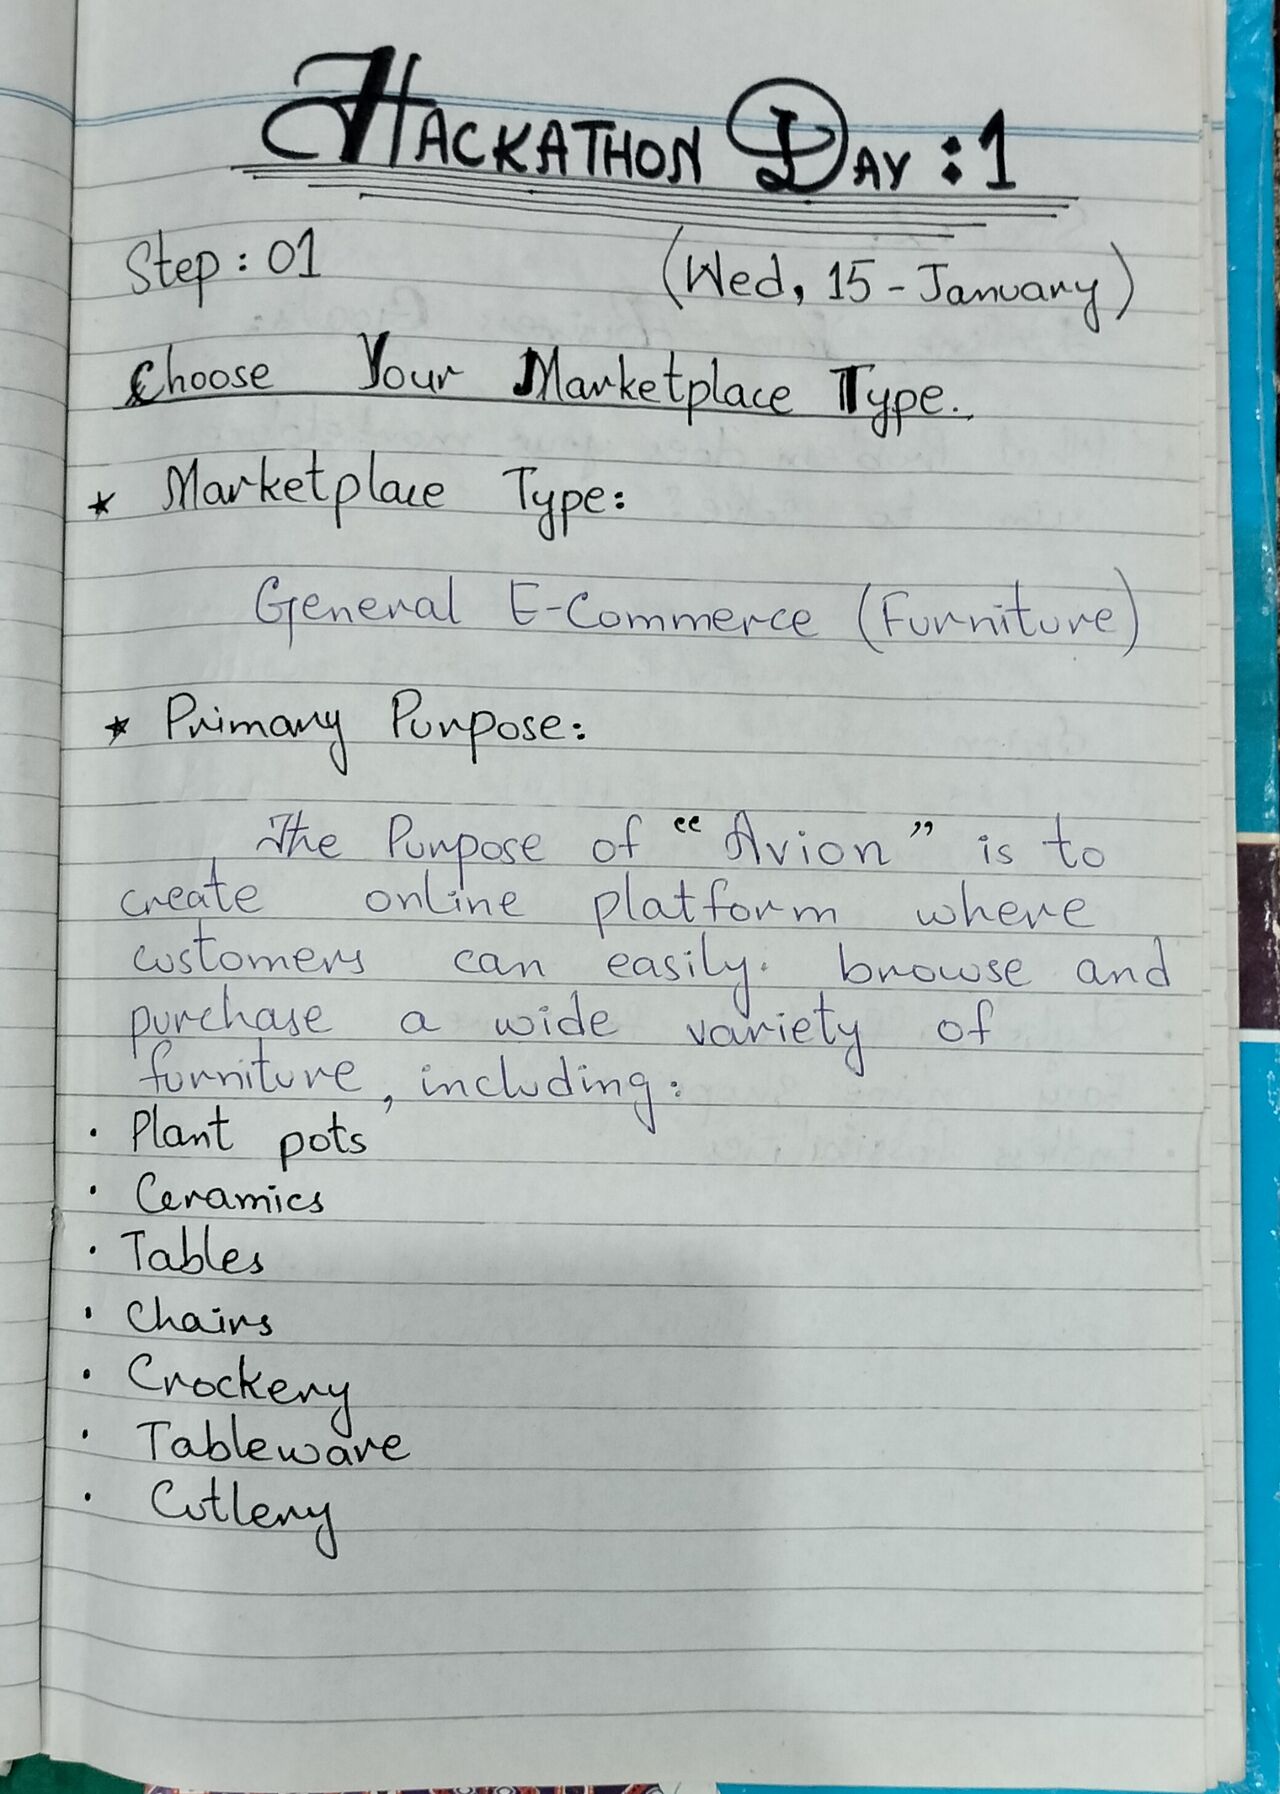 HACKATHON DAY : 1
Step : 01 (Wed, 15 - January)
Choose Your Marketplace Type.
★ Marketplace Type:
General E-Commerce (Furniture)
★ Primary Purpose:
The Purpose of “Avion” is to
create online platform where
customers can easily. browse and
purchase a wide variety of
furniture, including:
• Plant pots
• Ceramics
• Tables
• Chairs
• Crockery
• Tableware
• Cutlery